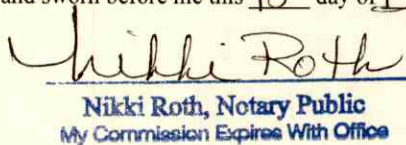 and sworn before me this 10 day of
Nikki Roth
Nikki Roth, Notary Public
My Commission Expires With Office